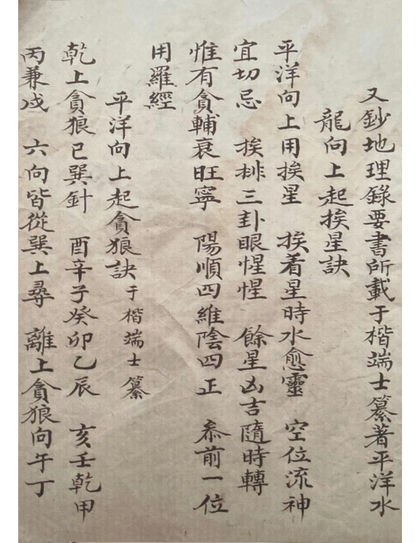 又鈔地理錄要書所載于楷端士纂著平洋水
龍向上起挨星訣
平洋向上用挨星 挨着星時水愈靈 空位流神
宜切忌 挨排三卦眼惺惺 餘星凶吉隨時轉
惟有貪輔衰旺寧 陽順四維陰四正 叅前一位
用羅經
平洋向上起貪狼訣于楷端士纂
乾上貪狼巳巽針 酉辛子癸卯乙辰 亥壬乾甲
丙兼戌 六向皆從巽上尋 離上貪狼向午丁